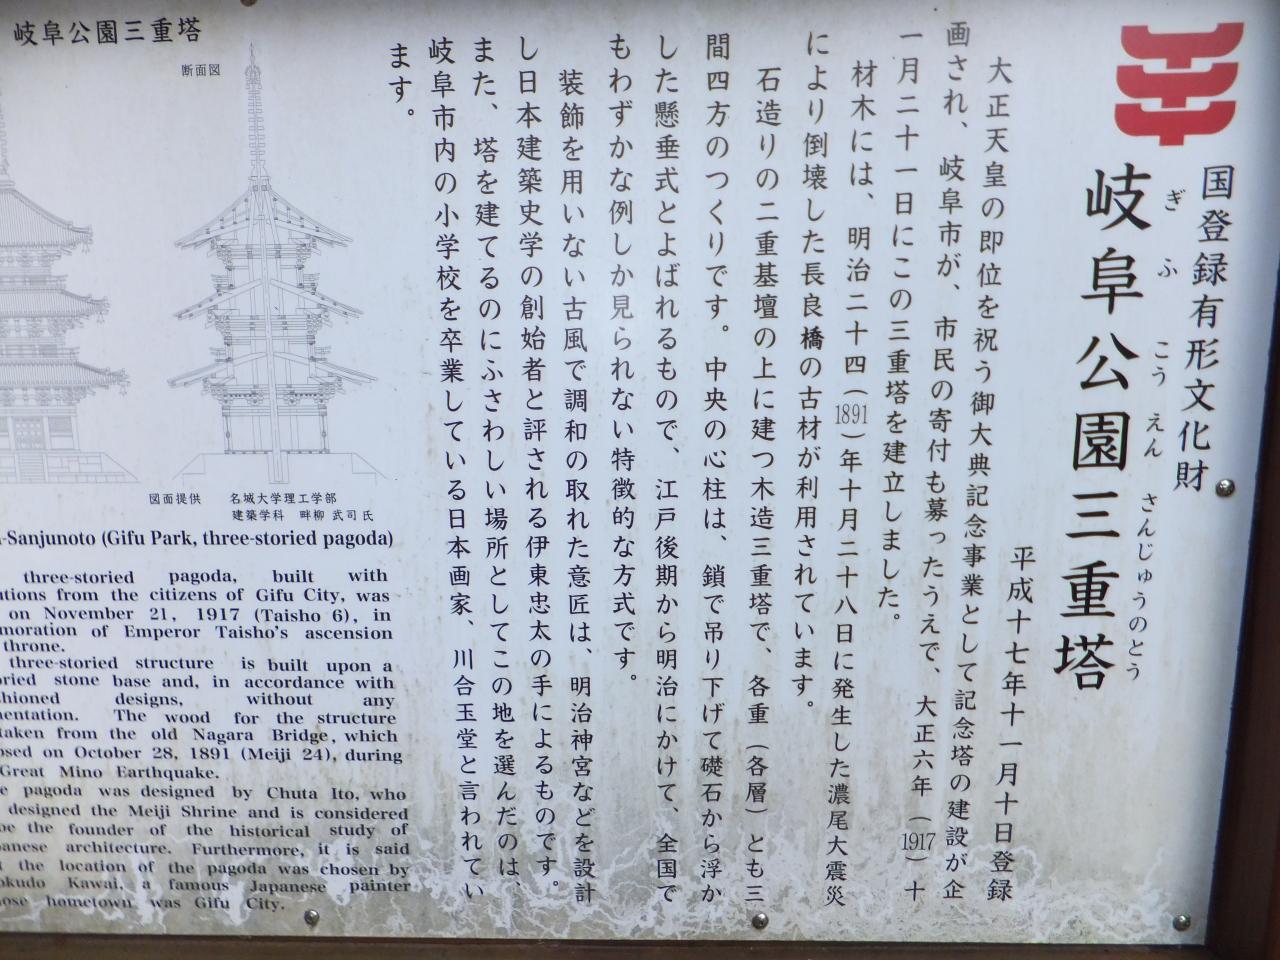 国登録有形文化財
岐阜公園三重塔
ぎふこうえんさんじゅうのとう
平成十七年十一月十日登録
大正天皇の即位を祝う御大典記念事業として記念塔の建設が企
画され、岐阜市が、市民の寄付も募ったうえで、大正六年(1917)十
一月二十一日にこの三重塔を建立しました。
材木には、明治二十四(1891)年十月二十八日に発生した濃尾大震災
により倒壊した長良橋の古材が利用されています。
石造りの二重基壇の上に建つ木造三重塔で、各重(各層)とも三
間四方のつくりです。中央の心柱は、鎖で吊り下げて礎石から浮か
した懸垂式とよばれるもので、江戸後期から明治にかけて、全国で
もわずかな例しか見られない特徴的な方式です。
装飾を用いない古風で調和の取れた意匠は、明治神宮などを設計
し日本建築史学の創始者と評される伊東忠太の手によるものです。
また、塔を建てるのにふさわしい場所としてこの地を選んだのは、
岐阜市内の小学校を卒業している日本画家、川合玉堂と言われてい
ます。
岐阜公園三重塔
断面図
図面提供 名城大学理工学部
建築学科 畔柳 武司 氏
-Sanjunoto (Gifu Park, three-storied pagoda)
three-storied pagoda, built with
from the citizens of Gifu City, was
on November 21, 1917 (Taisho 6), in
of Emperor Taisho's ascension
throne.
three-storied structure is built upon a
stone base and, in accordance with
designs, without any
The wood for the structure
taken from the old Nagara Bridge, which
on October 28, 1891 (Meiji 24), during
Great Mino Earthquake.
pagoda was designed by Chuta Ito, who
designed the Meiji Shrine and is considered
the founder of the historical study of
architecture. Furthermore, it is said
the location of the pagoda was chosen by
Kawai, a famous Japanese painter
hometown was Gifu City.